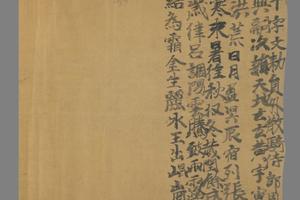 千字文勅員外散騎侍郎周
興嗣次韻天地玄黃宇宙
洪荒日月盈昃辰宿列張
寒来暑往秋收冬藏閏餘成
歲律呂調陽雲騰致雨露
結為霜金生麗水玉出崐崗